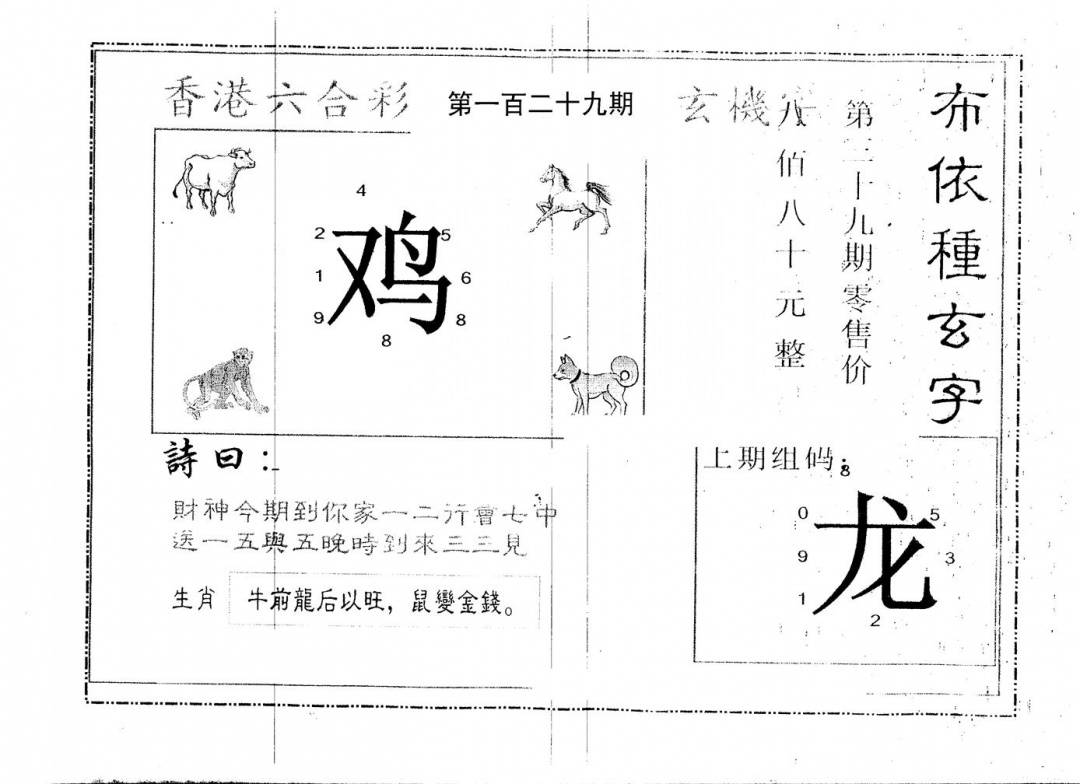 香港六合彩 第一百二十九期 玄機
布依種玄字
第二十九期零售价
八佰八十元整
4
2 鸡 5
1 6
9 8
8
詩曰：
財神今期到你家一二行會七中
送一五與五晚時到來三三見
生肖 牛前龍后以旺，鼠變金錢。
上期组码：
8
0 龙 5
9 3
1
2